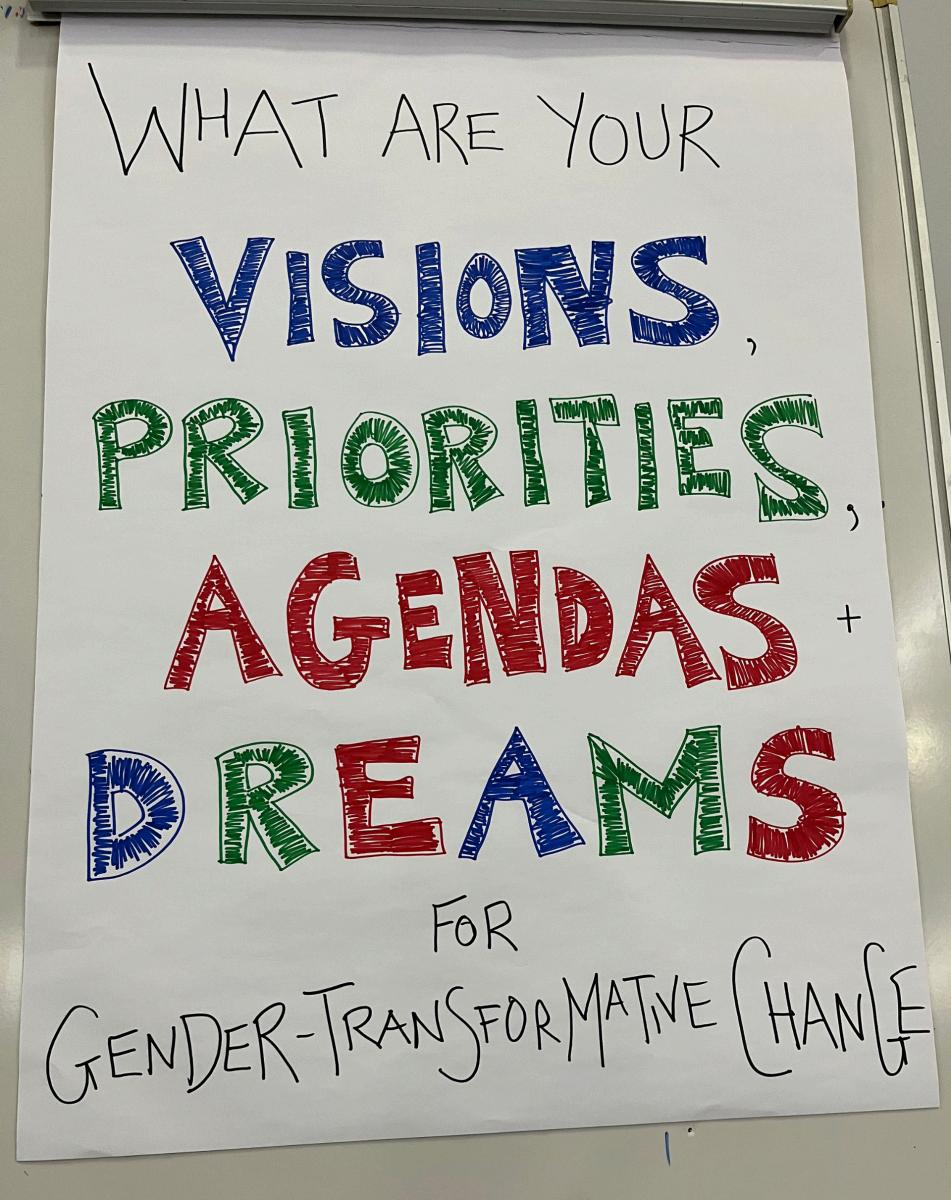 WHAT ARE YOUR
VISIONS,
PRIORITIES,
AGENDAS +
DREAMS
FOR
GENDER-TRANSFORMATIVE CHANGE